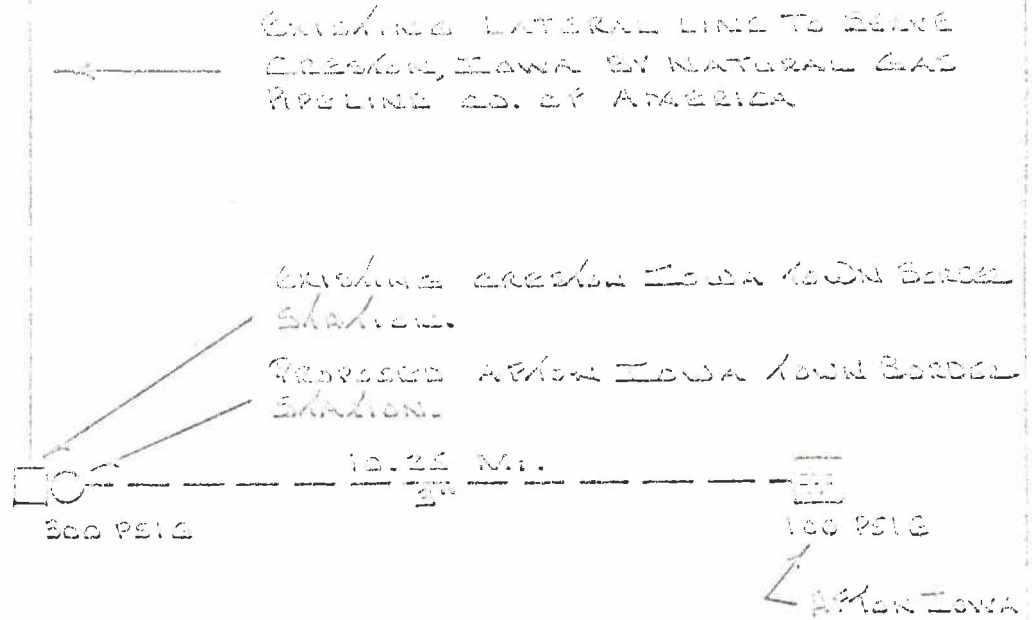 EXISTING LATERAL LINE TO SERVE
CRESTON, IOWA BY NATURAL GAS
PIPELINE CO. OF AMERICA
EXISTING CRESTON IOWA TOWN BORDER
STATION.
PROPOSED AFTON IOWA TOWN BORDER
STATION.
10.25 MI.
300 PSIG
100 PSIG
AFTON IOWA